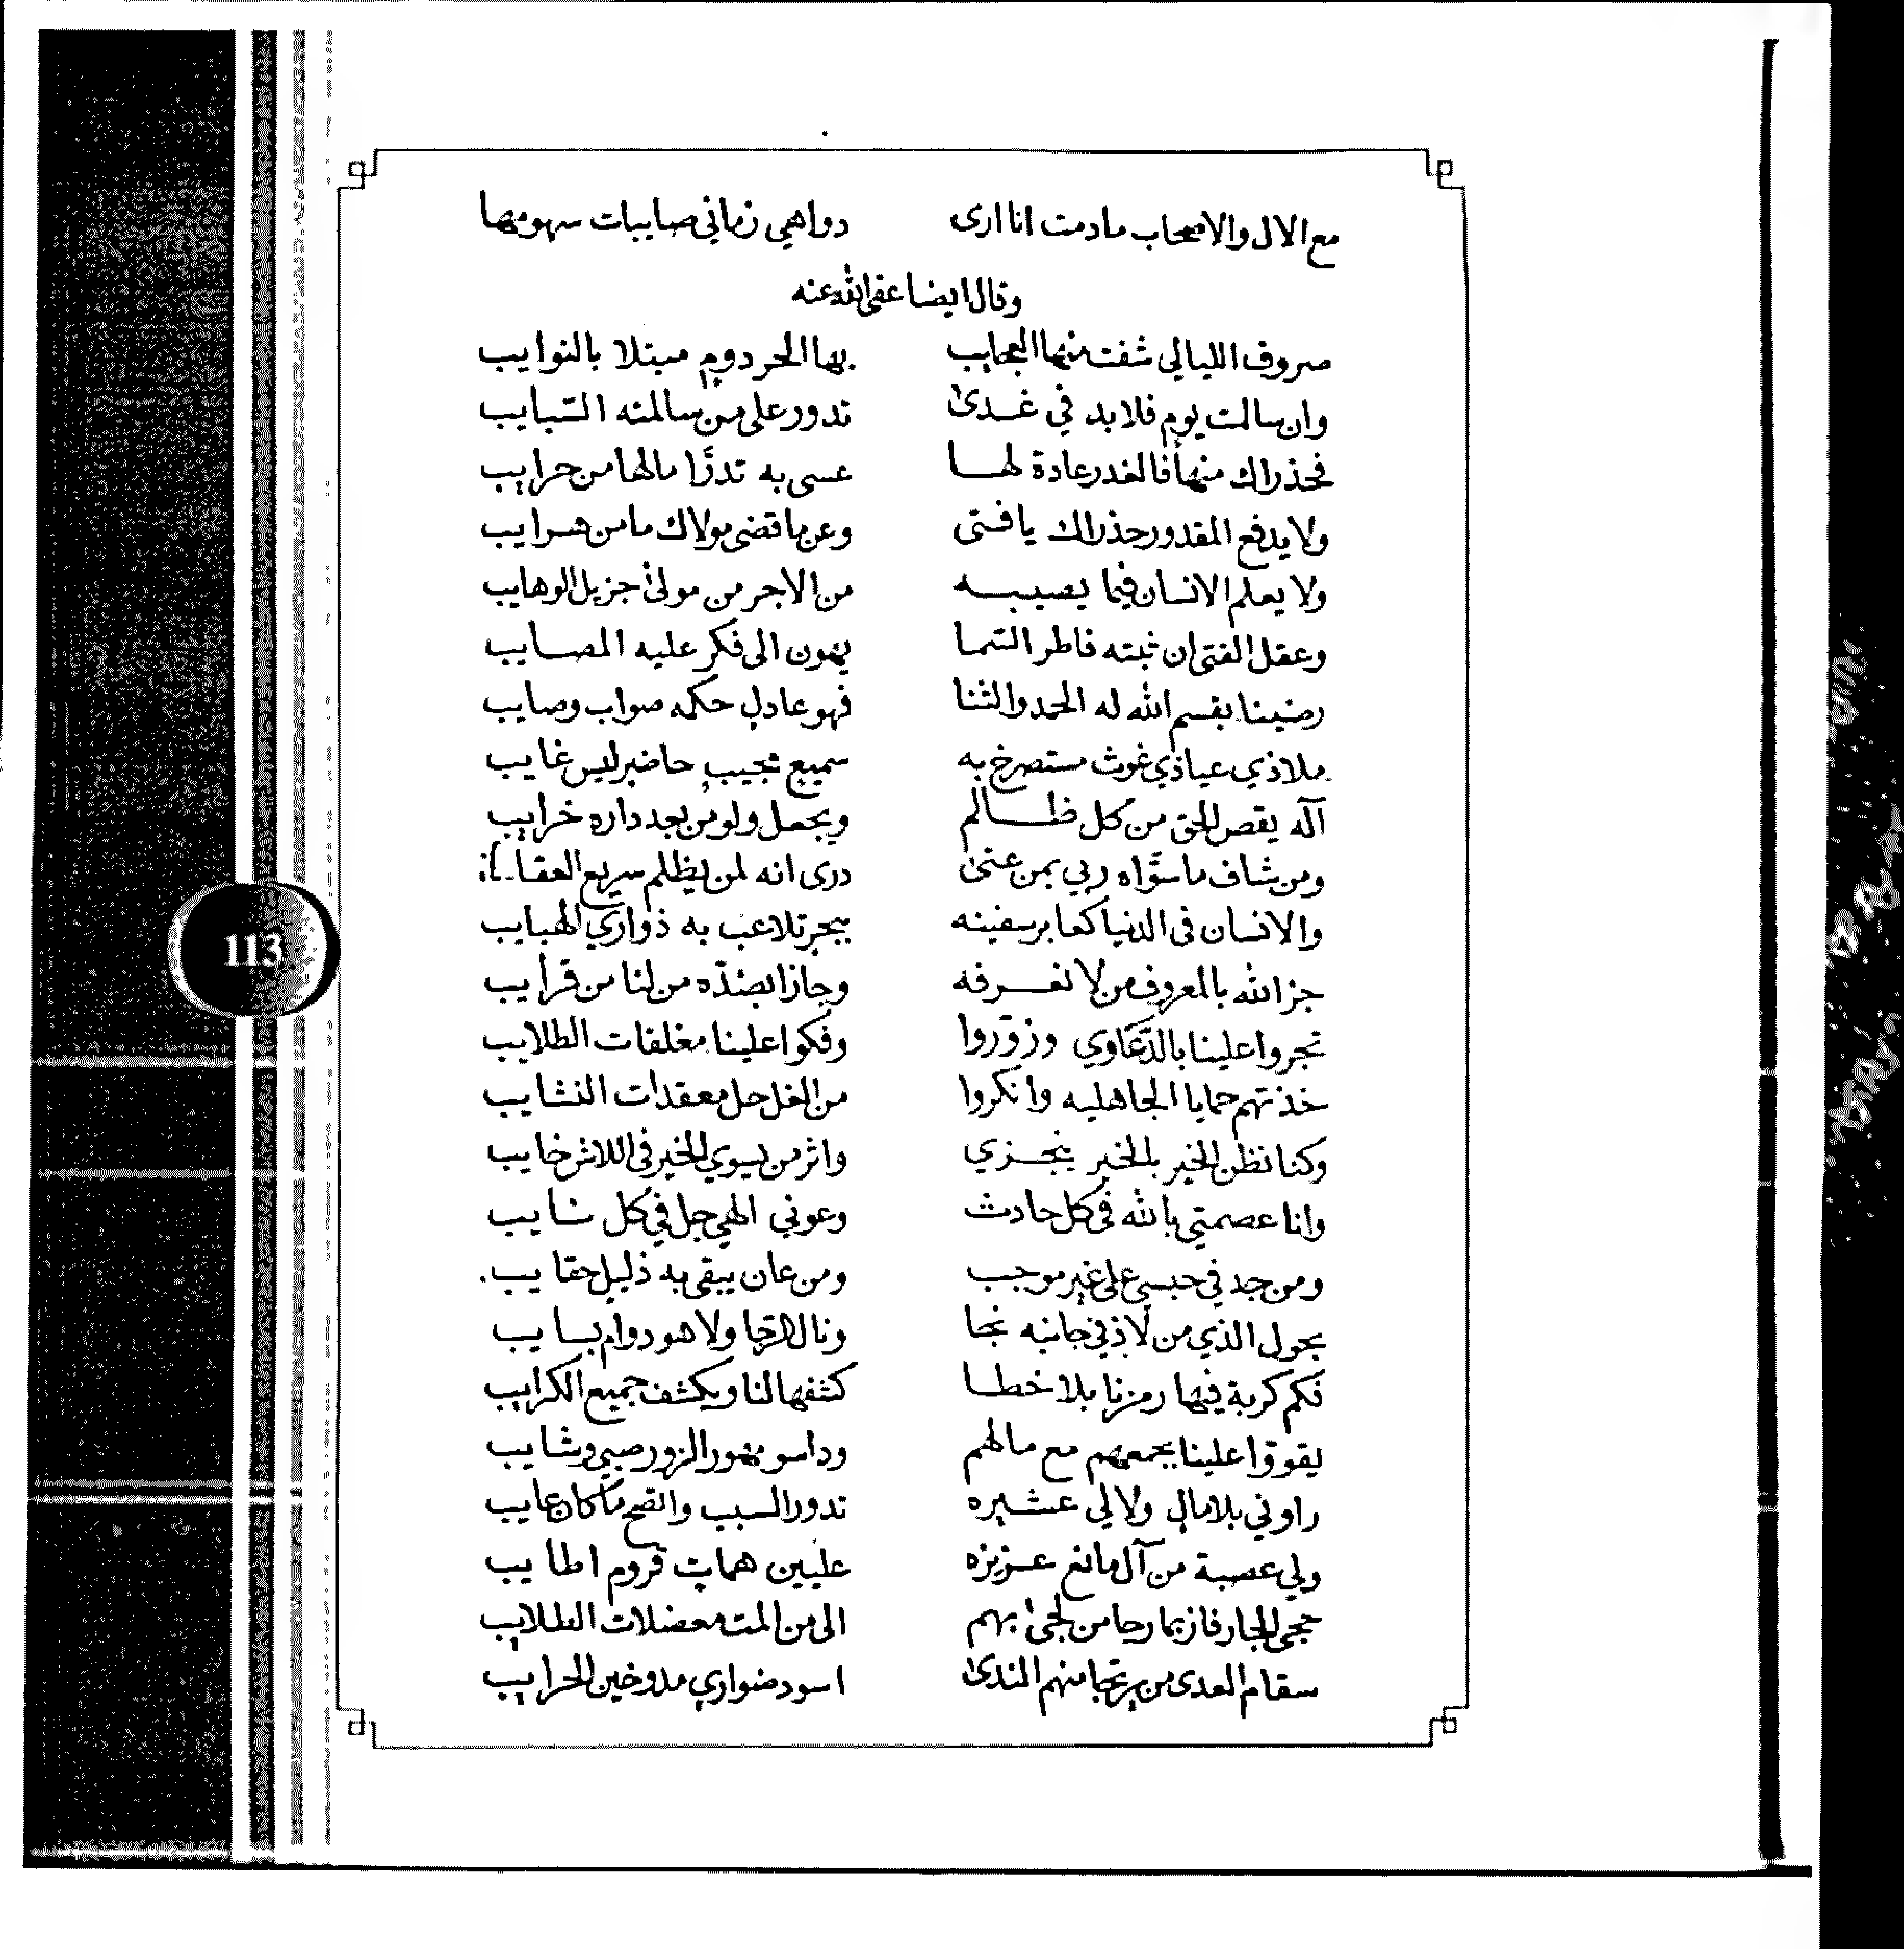 مع الال والاصحاب مادمت انا ارى دواهي زماني صايبات سهومها
وقال ايضا عفى الله عنه
صروف الليالي شفت منها العجايب بها الحر دومٍ مبتلا بالنوايب
وان سالمت يوم فلابد في غدىٰ تدور على من سالمته السّبايب
فحذراك منها فالغدر عادة لها عسى به تدرّا مالها من حرايب
ولا يدفع المقدور حذراك يا فتى وعن ما قضى مولاك ما من هرايب
ولا يعلم الانسان فيما يصيبه من الاجر من مولىٰ جزيل الوهايب
وعقل الفتى ان ثبته فاطر السّما يهون الى فكر عليه المصايب
رضينا بقسم الله له الحمد والثنا فهو عادلٍ حكمه صواب وصايب
ملاذي عياذي غوث مستصرخ به سميع مجيبٍ حاضر ليس غايب
آله يقص الحق من كل ظالم ويجعل ولو من بعد داره خرايب
ومن شاف ما سوّاه ربي بمن عتىٰ درى انه لمن يظلم سريع
والانسان في الدنيا كما بر سفينه ببحرٍ تلاعب به ذواري الهبايب
جزا الله بالمعروف من لا نعرفه وجازا بضدّه من لنا من قرايب
تجروا علينا بالدّعاوي وزوّروا وفكوا علينا مغلقات الطلايب
خذتهم حمايا الجاهليه وانكروا من الغل حل معقدات النشايب
وكنا نظن الخير بالخير ينجزي واثر من يسوي الخير في اللاش خايب
وانا عصمتي بالله في كل حادث وعوني الهي جل في كل نايب
ومن جد في حبسي على غير موجب ومن عان يبقى به ذليل حقايب
بحول الذي من لاذ في جانبه نجا ونال الرجا ولا هو دوام بسايب
فكم كربة فيها رمزنا بلا خطا كشفها لنا ويكشف جميع الكرايب
يقووا علينا بجمعهم مع مالهم وداسو مهور الزور صبي وشايب
راوني بلا مالٍ ولا لي عشيره تدور السبب واتضح ما كان عايب
ولي عصبة من آل مانع عزيزه عليين هماتٍ قروم اطايب
حجى الجار فاز بما رجا من لجىٰ بهم الى من المت معضلات الطلايب
سقام العدى من يرتجا منهم الندىٰ اسود ضواري مدوخين الحرايب
113